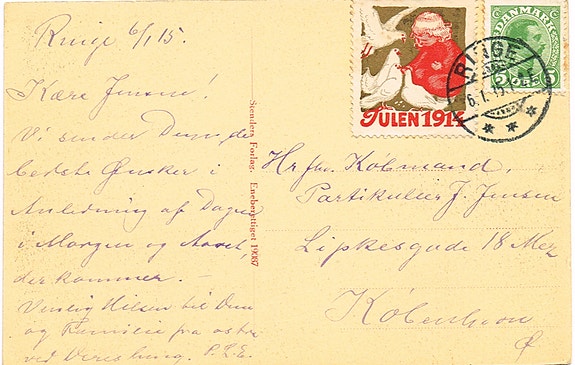 Ringe 6/1 15.
Kære Jensen!
Vi sender Dem de
bedste Ønsker i
Anledning af Dagen
i Morgen og Aaret,
der kommer. —
Venlig Hilsen til Dem
og Familie fra os
ved
Stenders Forlag. Eneberettiget 19087
JULEN 1914
DANMARK
5 ØRE 5
RINGE
6.1.15
Hr. fm. Kobmand,
Partikulier J. Jensen
Lipkesgade 18 Mez
København
Ø